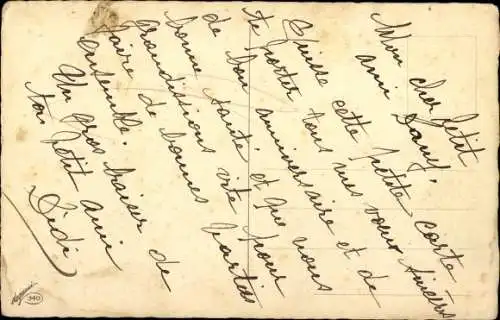 Mon cher petit
ami Dany,
Puisse cette petite carte
te porter tous mes voeux sincères
de bon anniversaire et de
bonne santé et que nous
grandissions vite pour
faire de bonnes parties
ensemble.
Un gros baiser de
ton petit ami
Didi
340